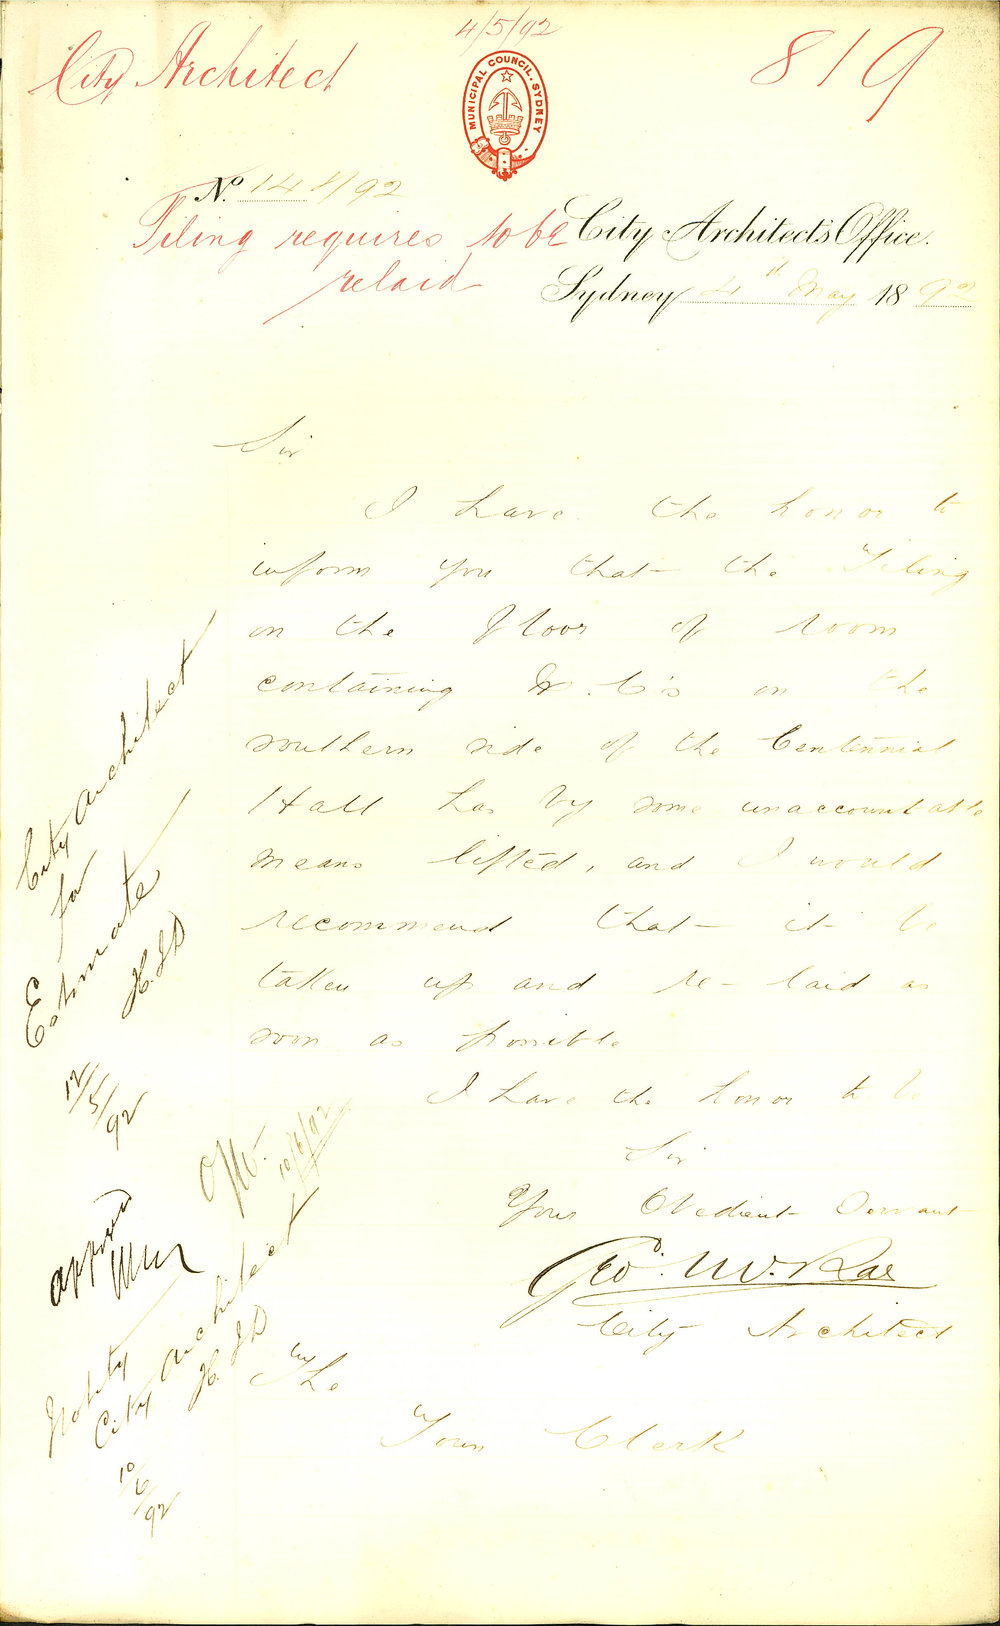 4/5/92
City Architect
819
MUNICIPAL COUNCIL. SYDNEY
No. 148/92
Tiling requires to be
relaid
City Architect's Office.
Sydney 4th May 1892
Sir
I have the honor to
inform you that the Tiling
on the floor of room
containing W.C's on the
southern side of the Centennial
Hall has by some unaccountable
means lifted, and I would
recommend that it be
taken up and re-laid as
soon as possible
I have the honor to be
Sir
Your Obedient Servant
Geo. McRae
City Architect
The
Town Clerk
City Architect
for
Estimate
H.J.D
12/5/92
approved
10/6/92
Notify
City Architect
H.J.D
10/6/92